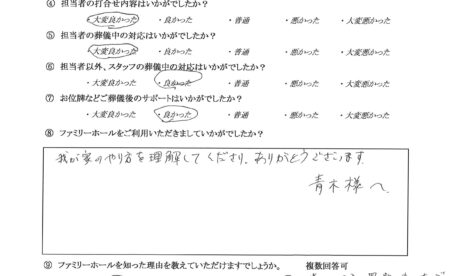 ④ 担当者の打合せ内容はいかがでしたか?
・大変良かった ・良かった ・普通 ・悪かった ・大変悪かった
⑤ 担当者の葬儀中の対応はいかがでしたか?
・大変良かった ・良かった ・普通 ・悪かった ・大変悪かった
⑥ 担当者以外、スタッフの葬儀中の対応はいかがでしたか?
・大変良かった ・良かった ・普通 ・悪かった ・大変悪かった
⑦ お位牌などご葬儀後のサポートはいかがでしたか?
・大変良かった ・良かった ・普通 ・悪かった ・大変悪かった
⑧ ファミリーホールをご利用いただきましていかがでしたか?
我が家のやり方を理解してくださり、ありがとうございます.
青木様へ
⑨ ファミリーホールを知った理由を教えていただけますでしょうか。 複数回答可